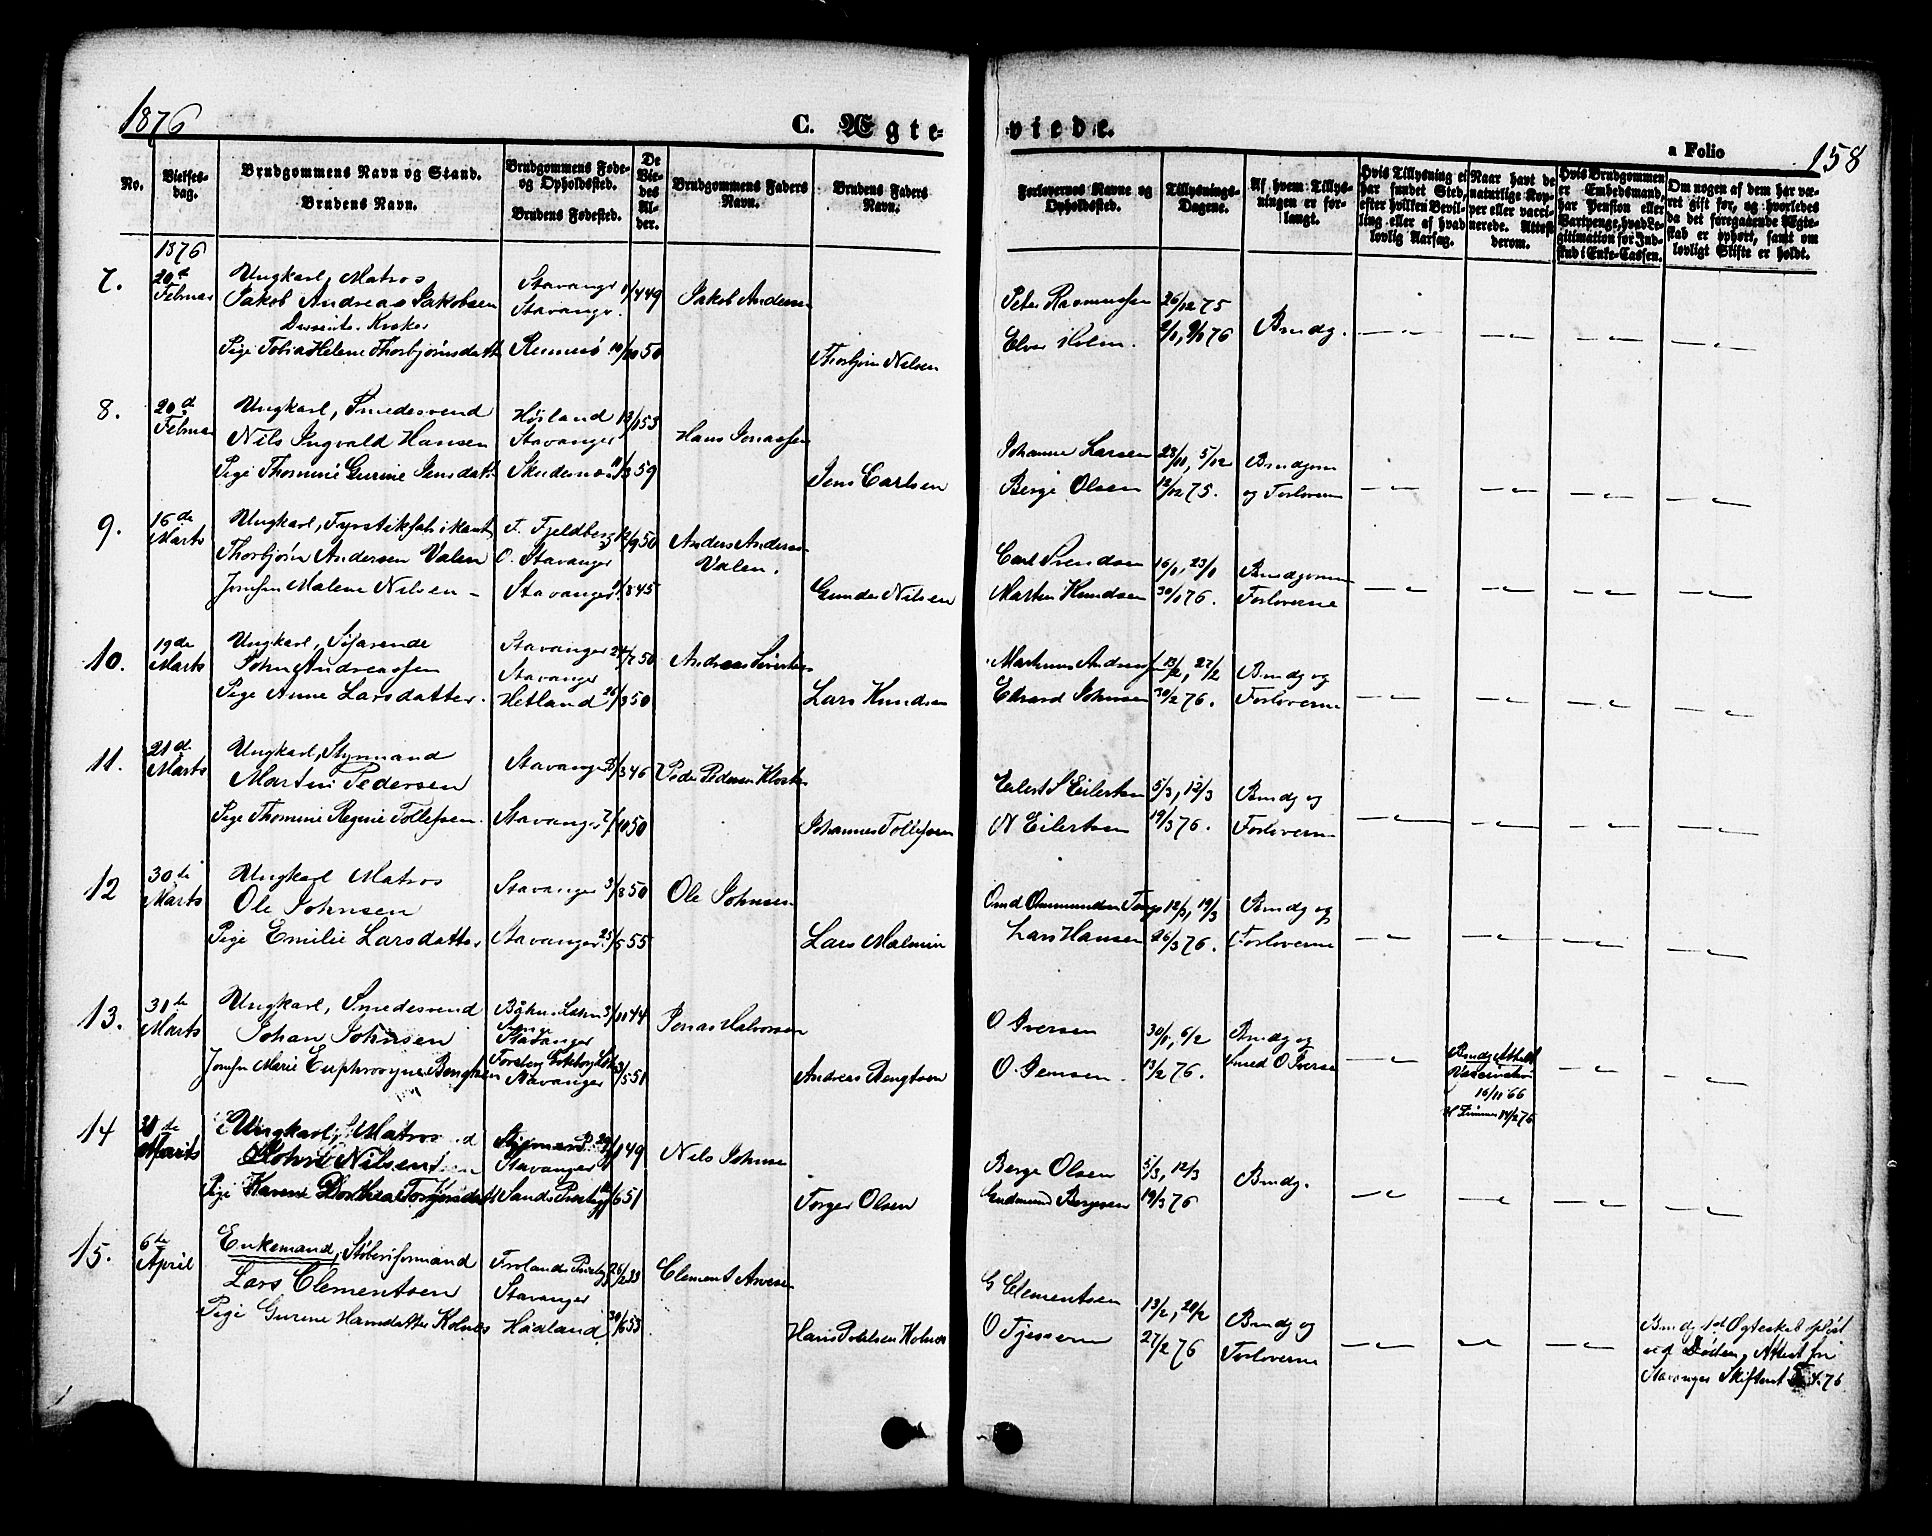 1876
C. Ægteviede.
a Folio 158
No.
Vielses-
dag.
Brudgommens Navn og Stand.
Brudens Navn.
Brudgommens Føde-
og Opholdssted.
Brudens Fødested.
De
Vie-
des
Al-
der.
Brudgommens Faders
Navn.
Brudens Faders
Navn.
Forlovernes Navne og
Opholdssted.
Tillysnings-
Dagene.
Af hvem Tillys-
ningen er for-
langt.
Hvis Tillysning ei
har fundet Sted,
efter hvilken Bevil-
ling eller af hvad
lovlig Aarsag.
Naar havt de
naturlige Kop-
per eller vacci-
nerede. Attest
derom.
Hvis Brudgommen
er Embedsmand,
har Pension eller
Vartpenge, hvad Le-
gitimation for Ind-
skud i Enke-Cassen.
Om nogen af dem har væ-
ret gift før, og hvorledes
da det foregaaende Ægte-
skab er ophørt, samt om
lovligt Skifte er holdt.
1876
7.
20de
Februar
Ungkarl, Matros
Jakob Andreas Jakobsen
Pige Tobia Helene Thorbjørnsdatt
Stavanger
Stavanger
Rennesø
1/4 49
10/10 50
Jakob Andersen
Thorbjørn Nilsen
Peter Rasmussen
Elver Holm.
26/12 75
2/1, 9/1 76
Brudg.
8.
20de
Februar
Ungkarl, Smedesvend
Nils Ingvald Hansen
Pige Thomine Gurine Jensdatt.
Højland
Stavanger
Skudesnæs
13/1 53
11/3 59
Hans Jonassen
Jens Carlsen
Johannes Larsen
Berge Olsen
28/11, 5/12
12/12 75.
Brudgom
og Forloverne
9.
16de
Marts
Ungkarl, Fyrstikfabrikant
Thorbjørn Andersen Valen
Jomfru Malene Nilsen
F. Fjeldberg
O. Stavanger
Stavanger
12/9 50
1/8 45
Anders Andersen
Valen.
Gunder Nilsen
Carl Svendsen
Marten Knudsen
16/1, 23/1
30/1 76.
Brudgommen
Forloverne
10.
19de
Marts
Ungkarl, Søfarende
John Andreassen
Pige Anne Larsdatter.
Stavanger
Stavanger
Hetland
24/7 50
26/3 50
Andreas
Lars Knudsen
Martinus Andreassen
Edvard Johnsen
13/2, 27/2
30/2 76.
Brudg og
Forloverne
11.
21de
Marts
Ungkarl, Styrmand
Martin Pedersen
Pige Thomine Regine Tollefsen.
Stavanger
Stavanger
/3 46
7/10 50
Peder Pedersen Kloster
Johannes Tollefsen
Eilert S Eilertsen
N Eilertsen
5/3, 12/3
19/3 76.
Brudg og
Forloverne
12
30te
Marts
Ungkarl Matros
Ole Johnsen
Pige Emilie Larsdatter
Stavanger
Stavanger
3/8 50
25/5 55
Ole Johnsen
Lars Malmin
Lars Hansen
12/3, 19/3
26/3 76.
Brudg og
Forloverne
13.
31te
Marts
Ungkarl, Smedesvend
Johan Johnsen
Jomfru Marie Euphrosyne Bengtsen
Stavanger
Stavanger
3/11 44
31/5 51
Jonas Halvorsen
Andreas Bengtsen
O Iversen
O Jensen.
30/1, 6/2
13/2 76.
Brudg og
Smed O Iversen
Brudg Attest
Vaccination
16/11 66
14/2 76
14
31te
Marts
Ungkarl, Matros
John Nilsen
Pige Karen Dorthea Torgersdatt
Stavanger
Sands Præsteg
/1 49
/6 51
Nils Johnsen
Torger Olsen
Berge Olsen
Gudmund Bergesen
5/3, 12/3
19/3 76
Brudg.
15.
6te
April
Enkemand, Støberiformand
Lars Clementsen
Pige Gurine Hansdatter Kolnes
Frolands Præsteg
Stavanger
Haaland
26/2 33
30/6 53
Clement Aresen
Hans Kolnes
G Clementsen
O Tjessem
13/2, 20/2
27/2 76
Brudg og
Forloverne
Brudg 1st Ægteskab opløst
ved Døden. Attest fra
Stavanger Skifteret 4 76